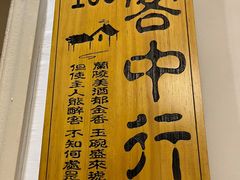 客中行
蘭陵美酒郁金香 玉碗盛來琥
但使主人能醉客 不知何處是